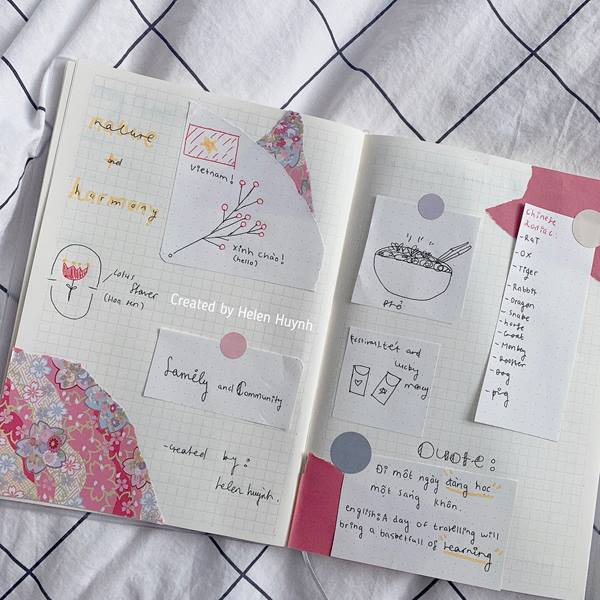 nature
and
harmony
Vietnam!
xinh chào!
(hello)
Lotus
flower
(Hoa sen)
Created by Helen Huynh
family and Community
-created by:
helen huynh.
Phở
Festival: tết and
lucky
money
Chinese
zodiac:
- Rat
- OX
- Tiger
- Rabbit
- Dragon
- Snake
- horse
- Goat
- Monkey
- Rooster
- Dog
- pig
Quote:
Đi một ngày đàng học
một sang khôn.
english: A day of travelling will
bring a basketfull of learning